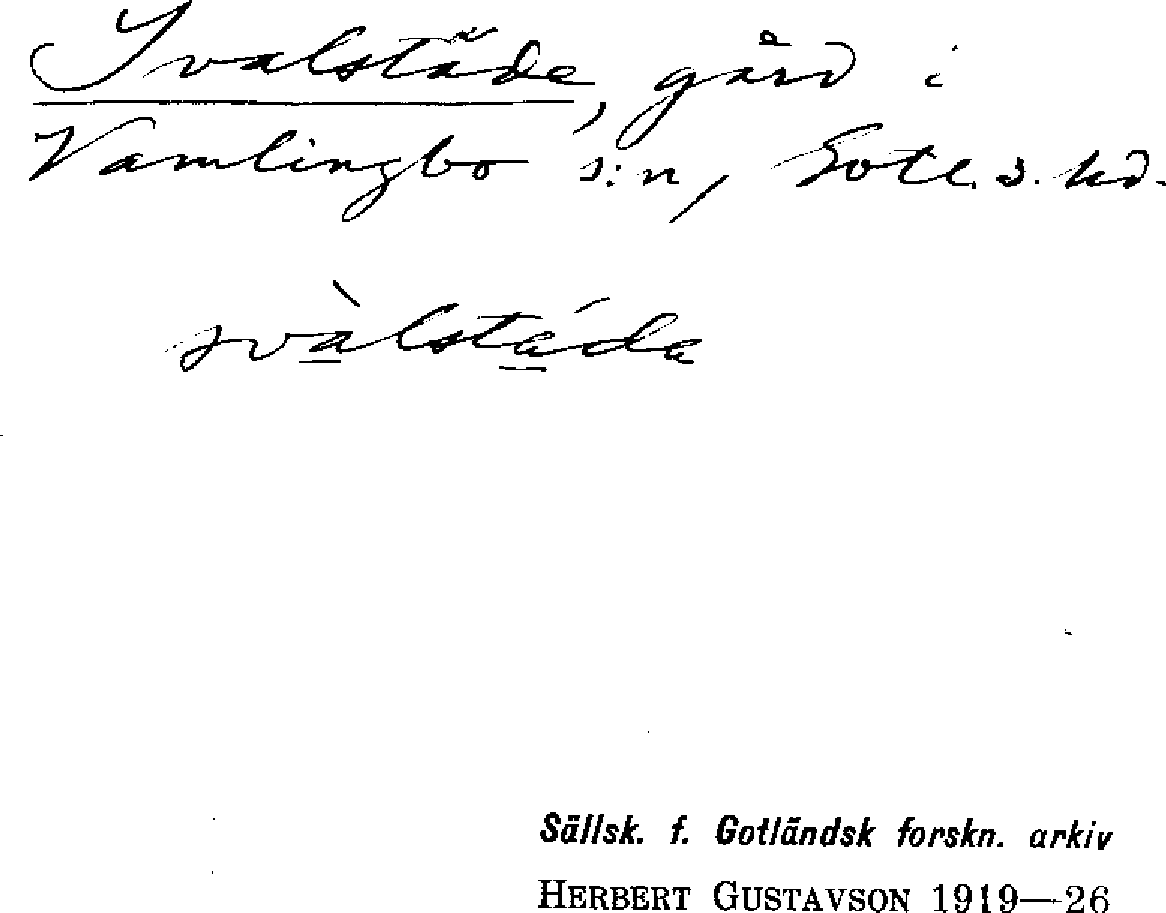 Svalstäde, gård i
Vamlingbo s:n, Gotl. s. hd.
svàlstáda
Sällsk. f. Gotländsk forskn. arkiv
HERBERT GUSTAVSON 1919—26